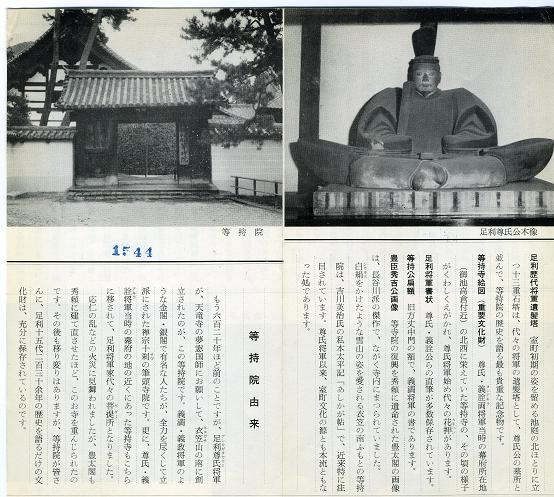 等持院
足利尊氏公木像
1544
足利歴代将軍遺髪塔　室町初期の姿を留める池庭の北ほとりに立
つ十三重石塔は、代々の将軍の遺髪塔として、尊氏公の墓所と
並んで、等持院の歴史を語る最も貴重な記念物です。
等持寺絵図（重要文化財）　尊氏・義詮両将軍当時の幕府所在地
（御池高倉付近）の北西に栄えていた等持寺の、その頃の様子
がくわしくえがかれ、尊氏将軍始め代々の花押があります。
足利将軍書状　尊氏・義詮公らの直筆が多数保存されています。
等持公扁額　旧方丈中門の額で、義満将軍の書であります。
豊臣秀吉公画像　等持院の復興を秀頼に遺命された豊太閤の画像
は、長谷川派の傑作で、ながく寺内にまつられていました。
白絹をかけたような雪山の姿を愛される衣笠の南ふもとの等持
院は、吉川英治氏の私本太平記『あしかが帖』で、近来特に注
目されています。尊氏将軍以来、室町文化の源とも本流ともな
った処であります。
等持院由来
もう六百二十年ほど前のことですが、足利尊氏将軍
が、天竜寺の夢窓国師にお願いして、衣笠山の南に創
立されたのが、この等持院です。義満・義政将軍のよ
うな金閣・銀閣で有名な人たちが、全力を尽くして立
派にされた禅宗十刹の筆頭寺院です。更に、尊氏・義
詮将軍当時の幕府の地の近くにあった等持寺もこちら
に移されて、足利将軍家代々の菩提所となりました。
応仁の乱などの火災に見舞われましたが、豊太閤も
秀頼に建て直させたほど、このお寺を重んじられたの
です。その後も移り変りはありますが、等持院が皆さ
んに、足利十五代二百三十余年の歴史を語るだけの文
化財は、充分に保存されているのです。